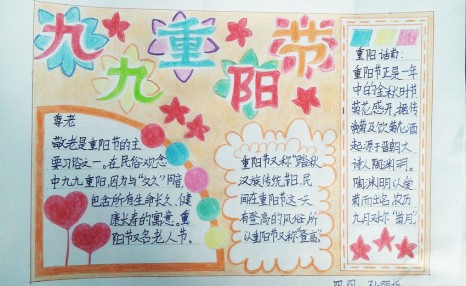 九九重阳节
尊老
敬老是重阳节的主
要习俗之一。在民俗观念
中九九重阳，因为与“久久”同音，
包含所有生命长久、健
康长寿的寓意。重
阳节又名老人节。
重阳节又称“踏秋”
汉族传统节日，民
间在重阳节这一天
有登高的风俗，所
以重阳节又称“登高”。
重阳话菊：
重阳节正是一年
中的金秋时节
菊花盛开，据传
赏菊及饮菊花酒
起源于晋朝大
诗人陶渊明。
陶渊明以爱
菊而出名，农历
九月又称“菊月”。